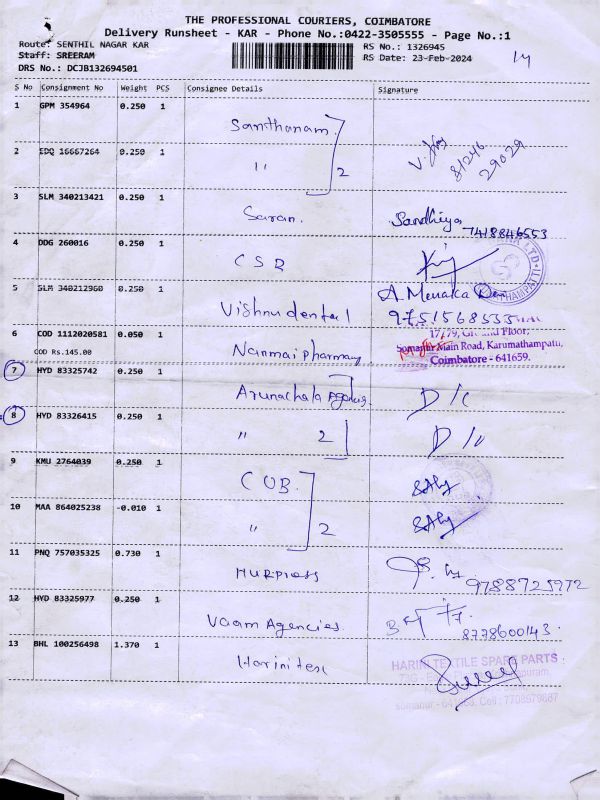 THE PROFESSIONAL COURIERS, COIMBATORE
Delivery Runsheet - KAR - Phone No.:0422-3505555 - Page No.:1
Route: SENTHIL NAGAR KAR
RS No.: 1326945
Staff: SREERAM
RS Date: 23-Feb-2024
14
DRS No.: DCJB132694501
S No Consignment No Weight PCS Consignee Details Signature
1 GPM 354964 0.250 1
Santhanam.
2 EDQ 16667264 0.250 1 " 2
81246
29029
3 SLM 340213421 0.250 1
Saran. Sandhiya
7418846553
4 DDG 260016 0.250 1
CSR
5 SLM 340212960 0.250 1 A. Menaka Devi
Vishnu dental 9751568533
6 COD 1112020581 0.050 1 17/79, Ground Floor,
COD Rs.145.00 Nanmai pharmacy Somanur Main Road, Karumathampatu,
Coimbatore - 641659.
7 HYD 83325742 0.250 1
Arunachala Agencies. D/C
8 HYD 83326415 0.250 1
" 2 D/C
9 KMU 2764039 0.250 1
CUB.
10 MAA 864025238 -0.010 1
" 2
11 PNQ 757035325 0.730 1
Hurpress 9788725972
12 HYD 83325977 0.250 1
Vaam Agencies. 8778600143.
13 BHL 100256498 1.370 1
Harinitex HARINI TEXTILE SPARE PARTS
Cell : 7708979887